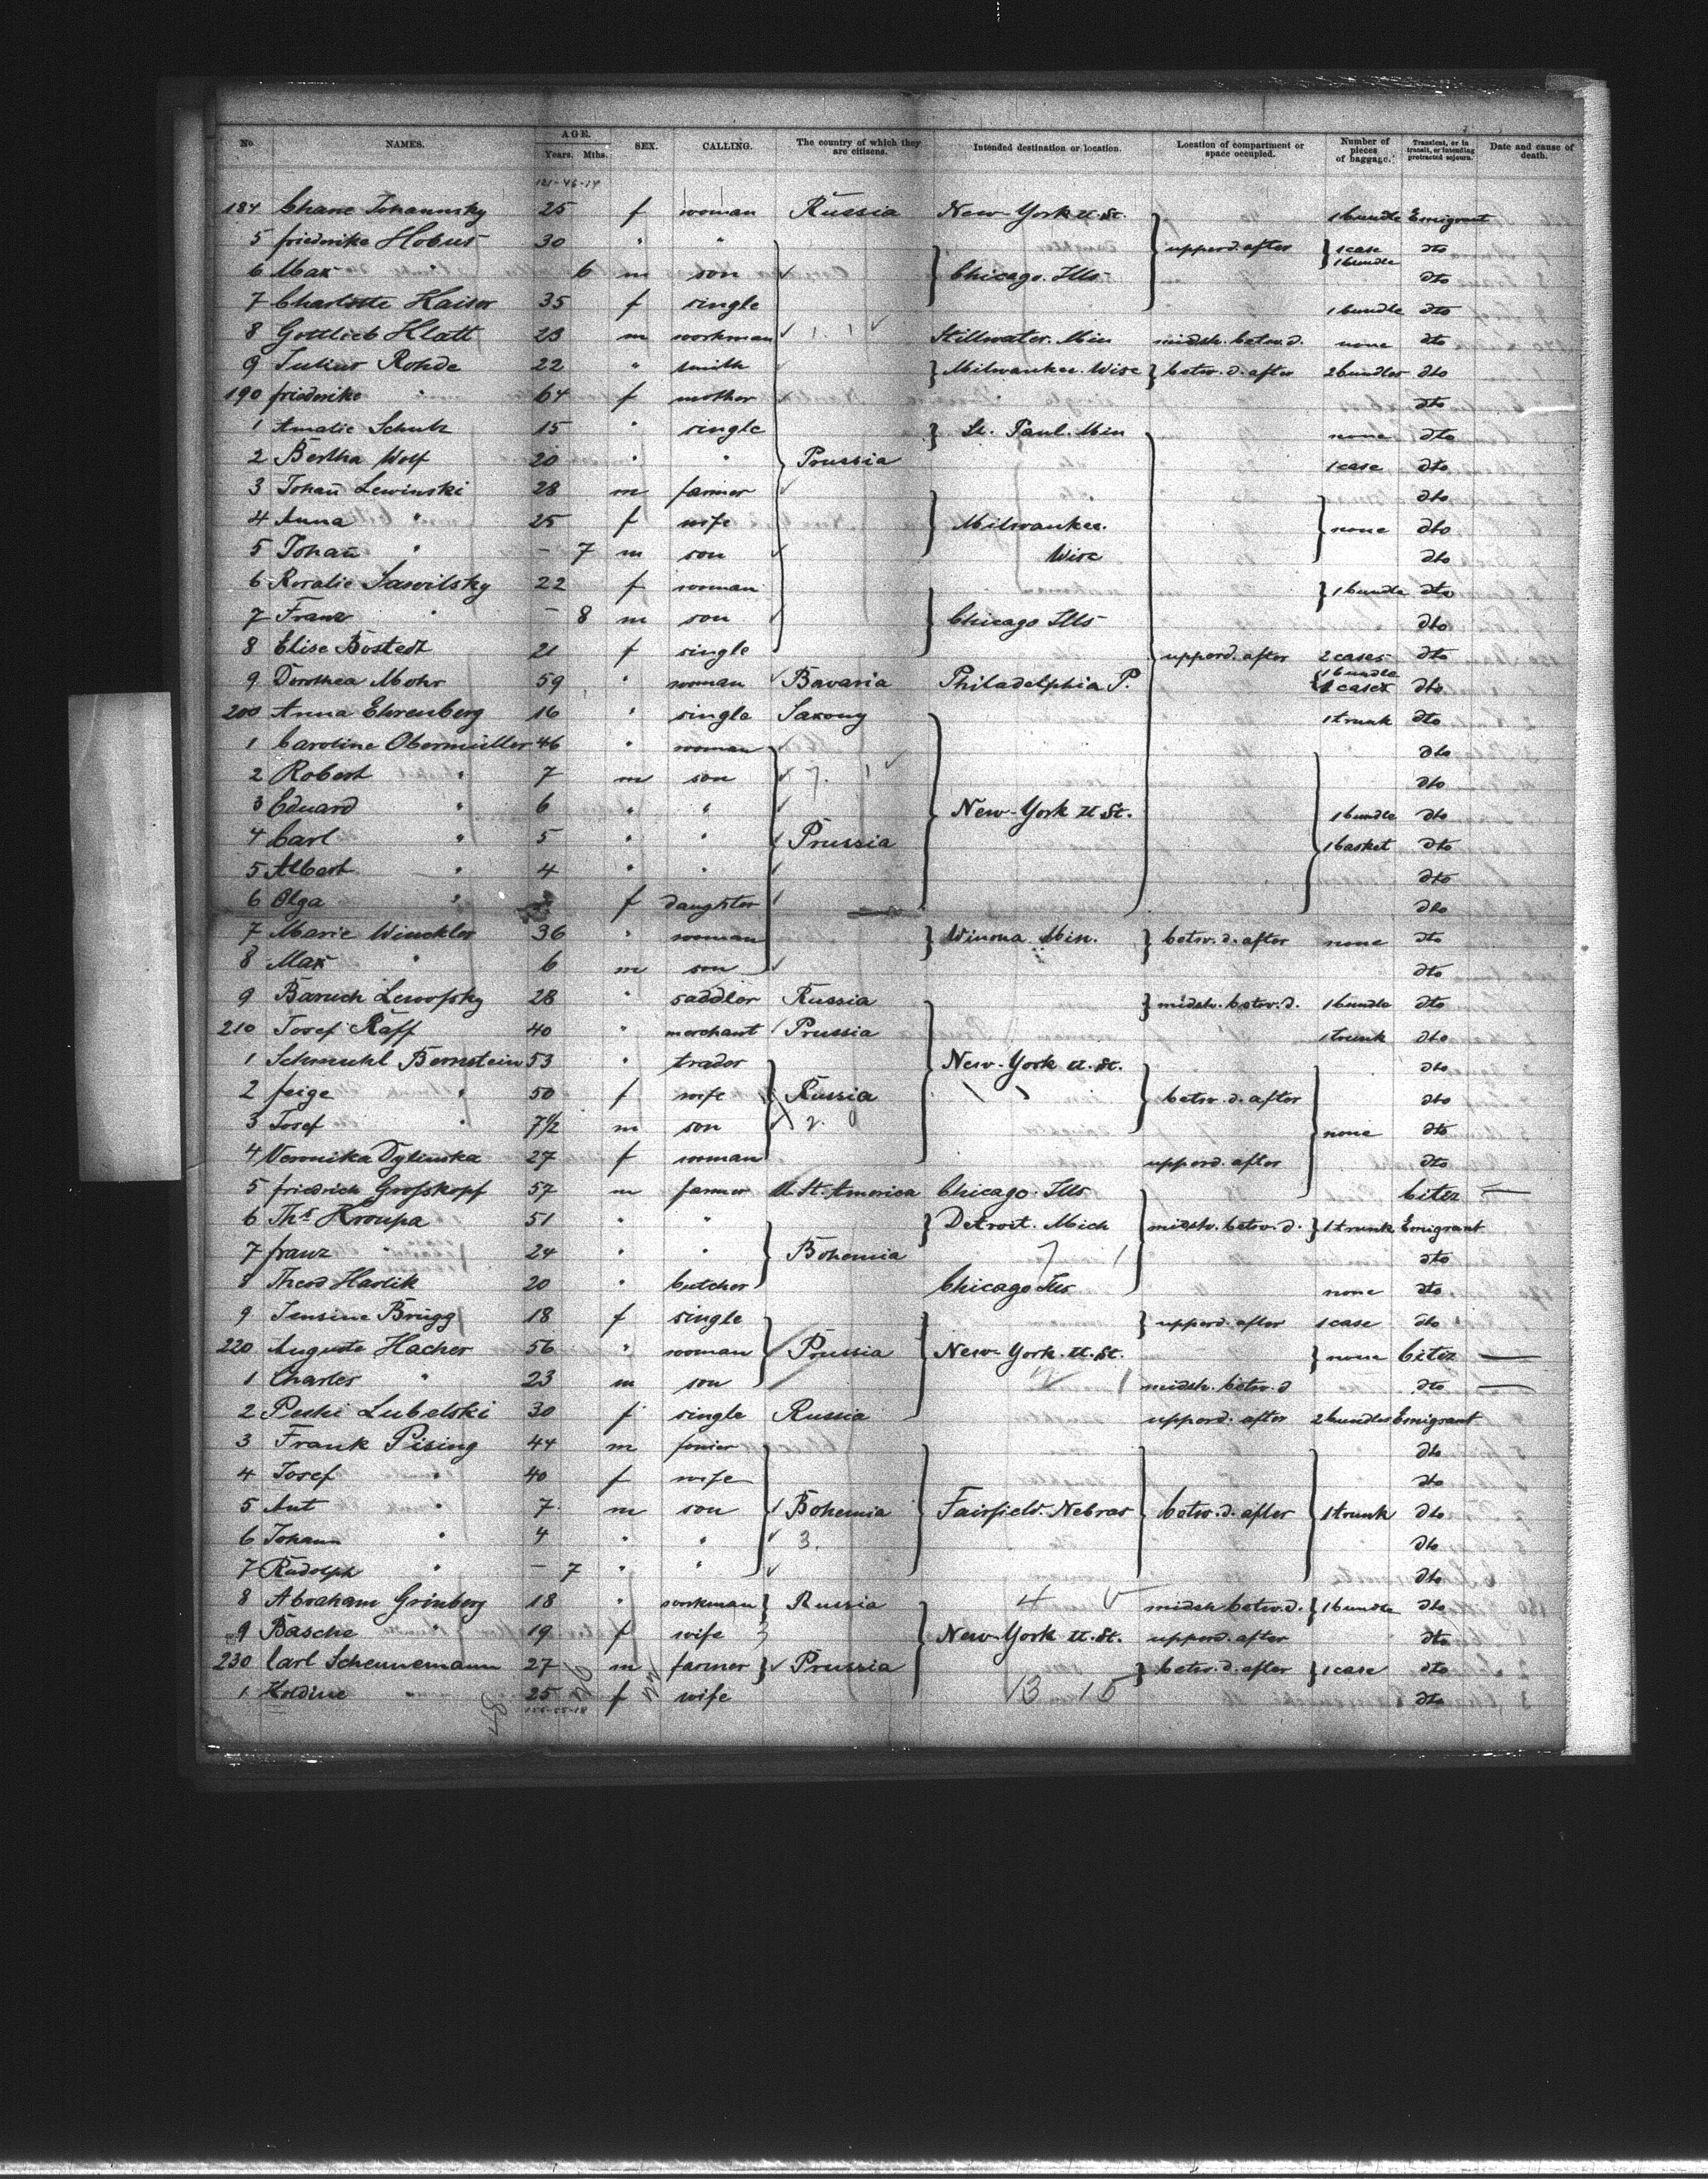 No NAMES. AGE. Years. Mths. SEX. CALLING. The country of which they are citizens. Intended destination or location. Location of compartment or space occupied. Number of pieces of baggage. Transient, or in transit, or intending protracted sojourn. Date and cause of death.
121-46-14
184 Chane Johannsky 25 f woman Russia New-York U.St. 1 bundle Emigrant
5 friederike Hobus 30 " " } upperd. after } 1 case dto
6 Max " 6 m son } Chicago. Ills 1 bundle dto
7 Charlotte Kaiser 35 f single 1 bundle dto
8 Gottlieb Klatt 23 m workman Stillwater. Min midsh. betw.d. none dto
9 Julius Rohde 22 " smith } Milwaukee. Wisc } betw.d. after 2 bundles dto
190 friederike " 64 f mother dto
1 Amalie Schulz 15 " single } St. Paul. Min none dto
2 Bertha Wolf 20 " " } Prussia 1 case dto
3 Johan̄ Lewinski 28 m farmer dto
4 Anna " 25 f wife } Milwaukee. } none dto
5 Johan̄ " – 7 m son Wisc dto
6 Rosalie Sawilsky 22 f woman } 1 bundle dto
7 Franz " – 8 m son } Chicago Ills dto
8 Elise Bostedt 21 f single } upperd. after 2 cases dto
9 Dorothea Mohr 59 " woman Bavaria Philadelphia P. { 1 bundle 1 case dto
200 Anna Ehrenberg 16 " single Saxony 1 trunk dto
1 Caroline Obermüller 46 " woman dto
2 Robert " 7 m son 7. dto
3 Eduard " 6 " " } New-York U.St. 1 bundle dto
4 Carl " 5 " " Prussia } 1 basket dto
5 Albert " 4 " " dto
6 Olga " f daughter dto
7 Marie Winckler 36 " woman } Winona. Min. } betw.d. after none dto
8 Max " 6 m son dto
9 Baruch Lewofsky 28 " saddler Russia } midsh. betw.d. 1 bundle dto
210 Josef Raff 40 " merchant Prussia 1 trunk dto
1 Schmuhl Bernstein 53 " trader } New-York U.St. dto
2 feige " 50 f wife } Russia } betw.d. after dto
3 Josef " 7½ m son 2. } none dto
4 Veronika Dylinska 27 f woman upperd. after dto
5 friedrich Grofskopf 57 m farmer U.St. America Chicago. Ills Citiz —
6 Ths. Kroupa 51 " " } Detroit. Mich } midsh. betw.d. } 1 trunk Emigrant
7 franz " 24 " " } Bohemia dto
8 Theod Havlik 20 " butcher Chicago Ills none dto
9 Jensine Brügg 18 f single } upperd. after 1 case dto
220 Auguste Hacher 56 " woman } Prussia } New-York. U.St. } none Citiz —
1 Charles " 23 m son midsh. betw.d dto —
2 Peshi Lubelski 30 f single Russia upperd. after 2 bundles Emigrant
3 Frank Pising 44 m dto
4 Josef " 40 f wife dto
5 Ant " 7 m son } Bohemia } Fairfield. Nebras } betw.d. after } 1 trunk dto
6 Johann " 4 " " 3. dto
7 Rudolph " – 7 " " dto
8 Abraham Grinberg 18 " workman } Russia 4 midsh. betw.d. } 1 bundle dto
9 Basche " 19 f wife } New-York U.St. upperd. after dto
230 Carl Scheunemann 27 m farmer } Prussia } betw.d. after } 1 case dto
1 " 25 f wife 13 15 dto